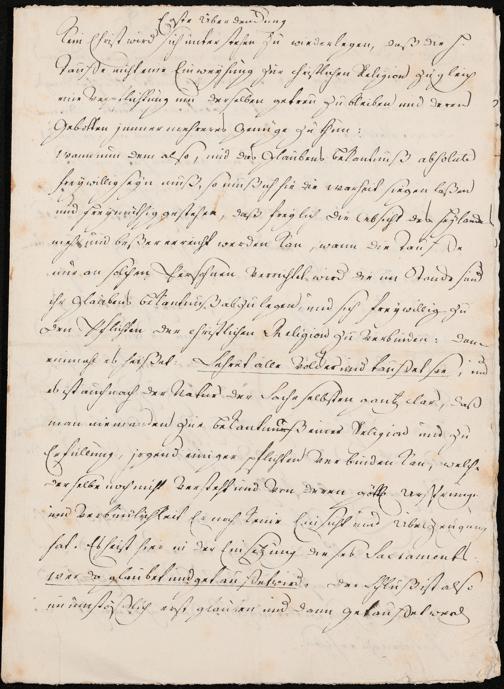 Erste Überdenckung
Kein Christ wird sich unterstehen zu wiederlegen, daß die H.
Tauffe nicht eine Einweyhung zur christlichen Religion zugleich
eine Verpflichtung mit derselben getreu zu bleiben und deren
Gebotten immer mehreres Genüge zu thun:
Wann nun dem also, und das Glaubens bekantnuß absolute
freywillig seyn muß, so muß ich hie die Warheit siegen laßen
und freymüthig gestehen, daß freylich die Absicht des Heylands
mehr und beßer erreicht werden kan, wann die Tauffe
nur an solchen Persohnen verrichtet wird die im Stande sind
ihr Glaubens bekantnuß abzulegen, und sich freywillig zu
den Pflichten der christlichen Religion zu verbinden: dann
einmahl es heißet: Lehret alle Völcker und tauffet sie, und
es ist auch nach der Natur der Sache selbsten gantz klar, daß
man niemanden zur bekantnuß einer Religion und zu
Erfüllung, irgend einiger Pflichten verbinden kan, welche
derselbe noch nicht versteht und von deren göttl. Ursprung
und Verbindlichkeit Er noch keine Einsicht und Überzeugung
hat. Es heist hier in der Einsetzung dieses Sacraments:
wer da glaubet und getauffet wird. Der Schluß ist also
unumstößlich erst glauben und dann getauffet werd